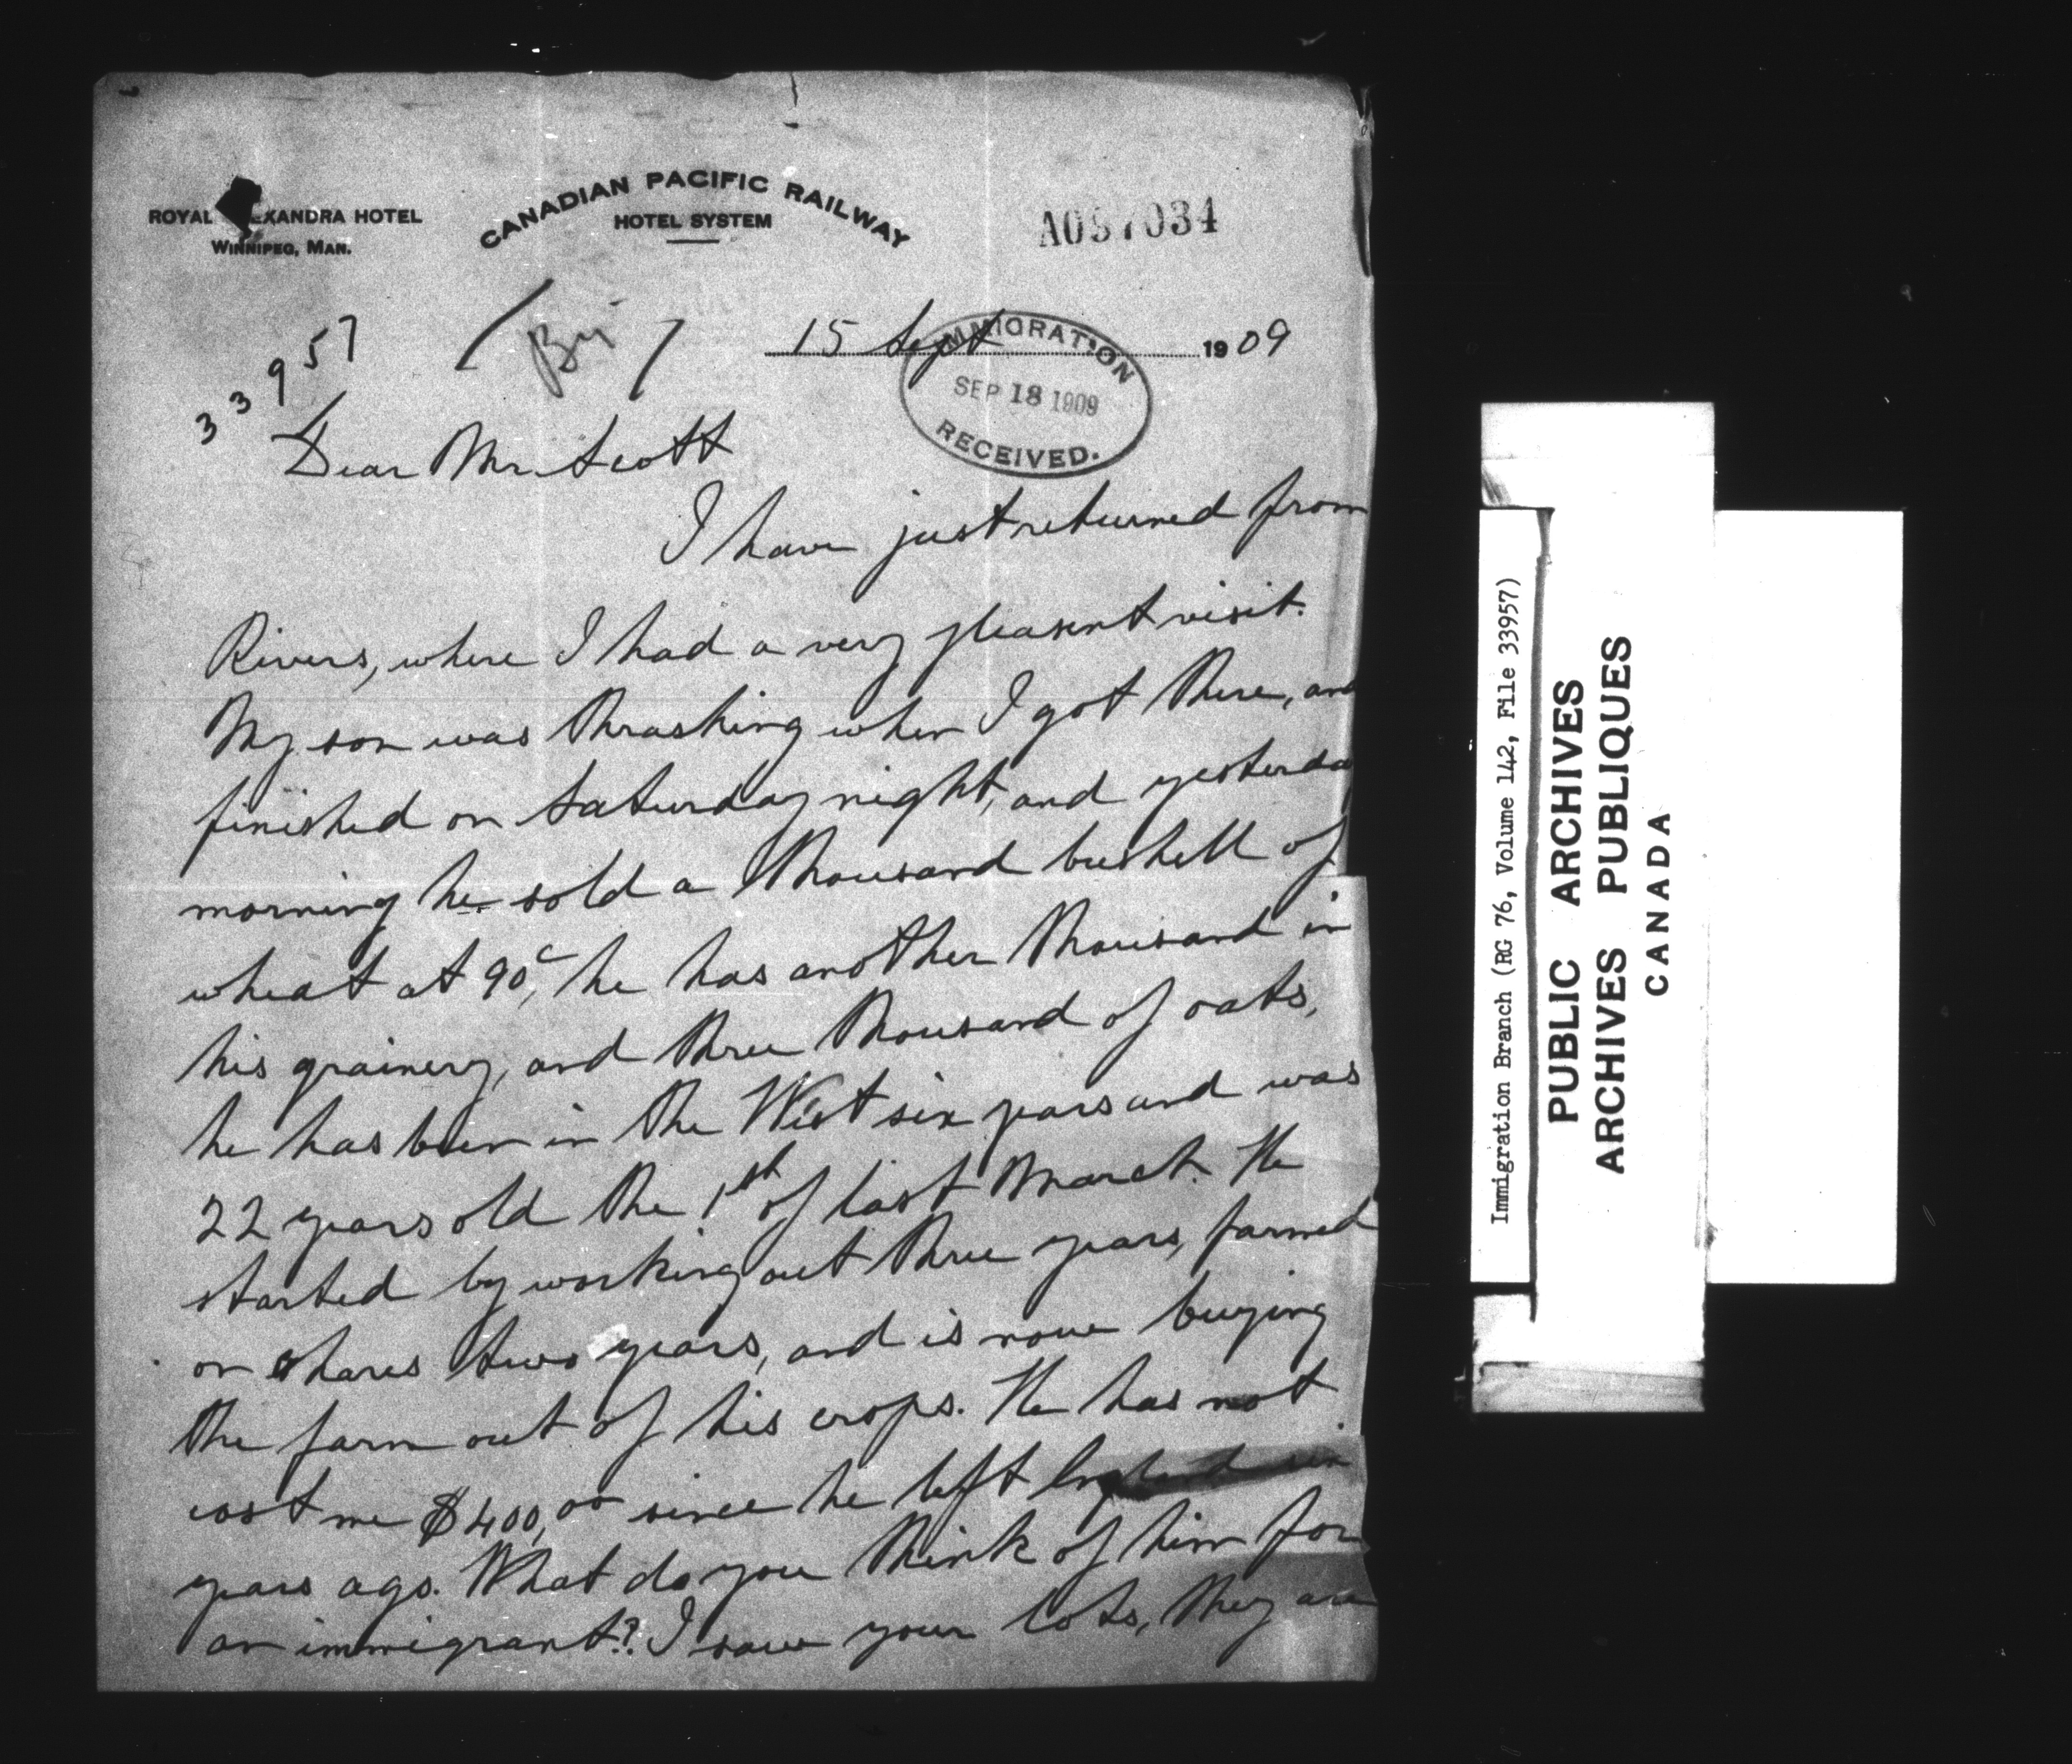 CANADIAN PACIFIC RAILWAY
HOTEL SYSTEM
ROYAL EXANDRA HOTEL
WINNIPEG, MAN.
A097034
33957
15 Sept 1909
IMMIGRATION
SEP 18 1909
RECEIVED.
Dear Mr. Scott
I have just returned from
Rivers, where I had a very pleasent visit.
My son was thrashing when I got there, and
finished on Saturday night, and yesterda
morning he sold a thousand bushell of
wheat at 90c, he has another thousand in
his grainery, and three thousand of oats,
he has been in the West six years and was
22 years old the 1st of last March. He
started by working out three years, farmed
on shares two years, and is now buying
the farm out of his crops. He has not
cost me $400,00 since he left England six
years ago. What do you think of him for
an immigrant? I saw your lots, they are
Immigration Branch (RG 76, Volume 142, File 33957)
PUBLIC ARCHIVES
ARCHIVES PUBLIQUES
CANADA